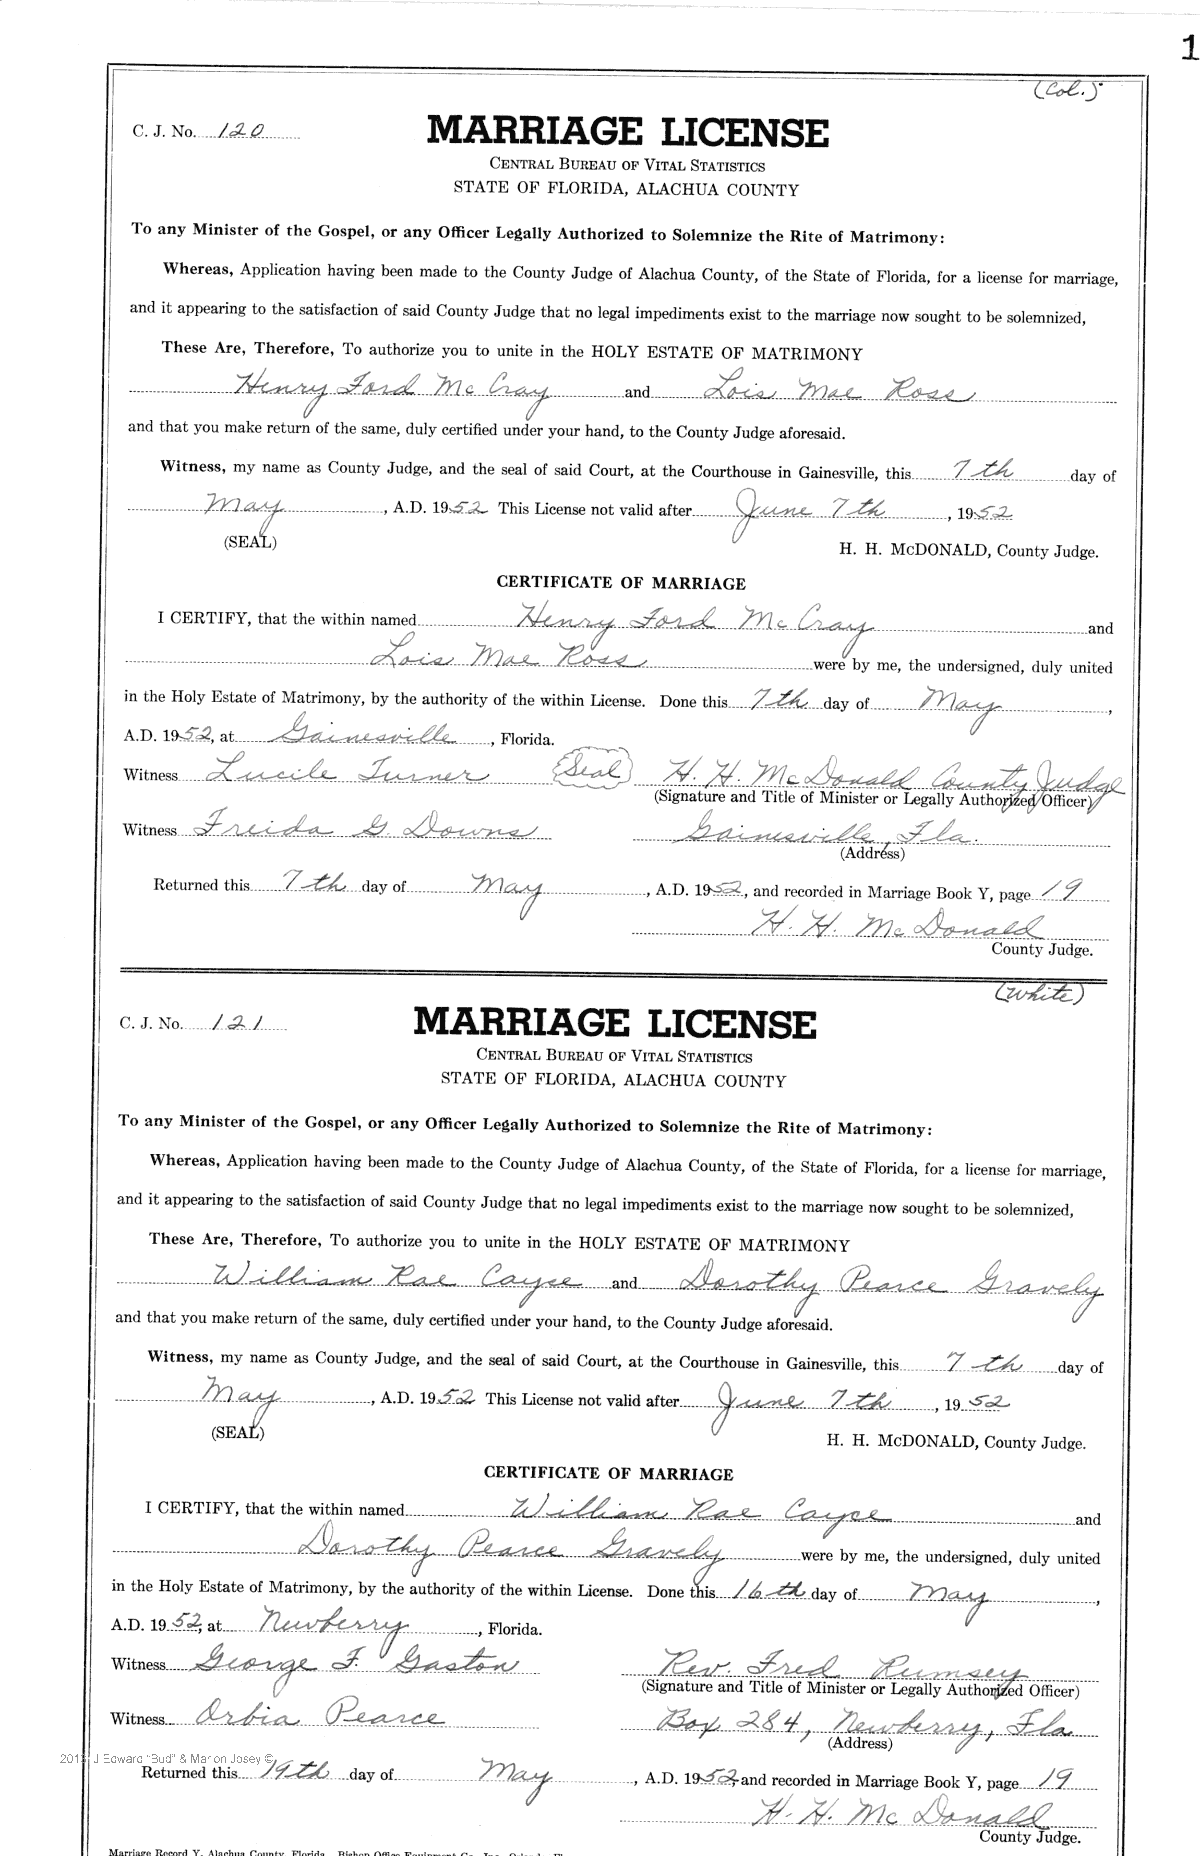 1
(Col.)
C. J. No. 120
MARRIAGE LICENSE
CENTRAL BUREAU OF VITAL STATISTICS
STATE OF FLORIDA, ALACHUA COUNTY
To any Minister of the Gospel, or any Officer Legally Authorized to Solemnize the Rite of Matrimony:
Whereas, Application having been made to the County Judge of Alachua County, of the State of Florida, for a license for marriage,
and it appearing to the satisfaction of said County Judge that no legal impediments exist to the marriage now sought to be solemnized,
These Are, Therefore, To authorize you to unite in the HOLY ESTATE OF MATRIMONY
Henry Ford McCray and Lois Mae Ross
and that you make return of the same, duly certified under your hand, to the County Judge aforesaid.
Witness, my name as County Judge, and the seal of said Court, at the Courthouse in Gainesville, this 7th day of
May, A.D. 1952 This License not valid after June 7th, 1952
(SEAL)
H. H. McDONALD, County Judge.
CERTIFICATE OF MARRIAGE
I CERTIFY, that the within named Henry Ford McCray and
Lois Mae Ross were by me, the undersigned, duly united
in the Holy Estate of Matrimony, by the authority of the within License. Done this 7th day of May,
A.D. 1952, at Gainesville, Florida.
Witness Lucile Turner (Seal) H. H. McDonald County Judge
(Signature and Title of Minister or Legally Authorized Officer)
Witness Freida G Downs Gainesville, Fla.
(Address)
Returned this 7th day of May, A.D. 1952, and recorded in Marriage Book Y, page 19
H. H. McDonald
County Judge.
(White)
C. J. No. 121
MARRIAGE LICENSE
CENTRAL BUREAU OF VITAL STATISTICS
STATE OF FLORIDA, ALACHUA COUNTY
To any Minister of the Gospel, or any Officer Legally Authorized to Solemnize the Rite of Matrimony:
Whereas, Application having been made to the County Judge of Alachua County, of the State of Florida, for a license for marriage,
and it appearing to the satisfaction of said County Judge that no legal impediments exist to the marriage now sought to be solemnized,
These Are, Therefore, To authorize you to unite in the HOLY ESTATE OF MATRIMONY
William Rae Cayce and Dorothy Pearce Gravely
and that you make return of the same, duly certified under your hand, to the County Judge aforesaid.
Witness, my name as County Judge, and the seal of said Court, at the Courthouse in Gainesville, this 7th day of
May, A.D. 1952 This License not valid after June 7th, 1952
(SEAL)
H. H. McDONALD, County Judge.
CERTIFICATE OF MARRIAGE
I CERTIFY, that the within named William Rae Cayce and
Dorothy Pearce Gravely were by me, the undersigned, duly united
in the Holy Estate of Matrimony, by the authority of the within License. Done this 16th day of May,
A.D. 1952, at Newberry, Florida.
Witness George F. Gaston Rev. Fred Rumsey
(Signature and Title of Minister or Legally Authorized Officer)
Witness Orbia Pearce Box 284, Newberry, Fla
(Address)
J Edward "Bud" & Marion Josey ©
Returned this 19th day of May, A.D. 1952, and recorded in Marriage Book Y, page 19
H. H. McDonald
County Judge.
Marriage Record Y, Alachua County, Florida